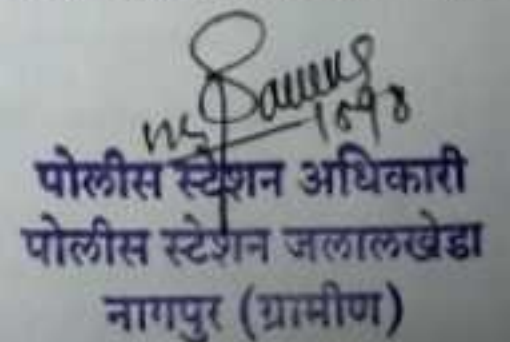 पोलीस स्टेशन अधिकारी
पोलीस स्टेशन जलालखेडा
नागपुर (ग्रामीण)